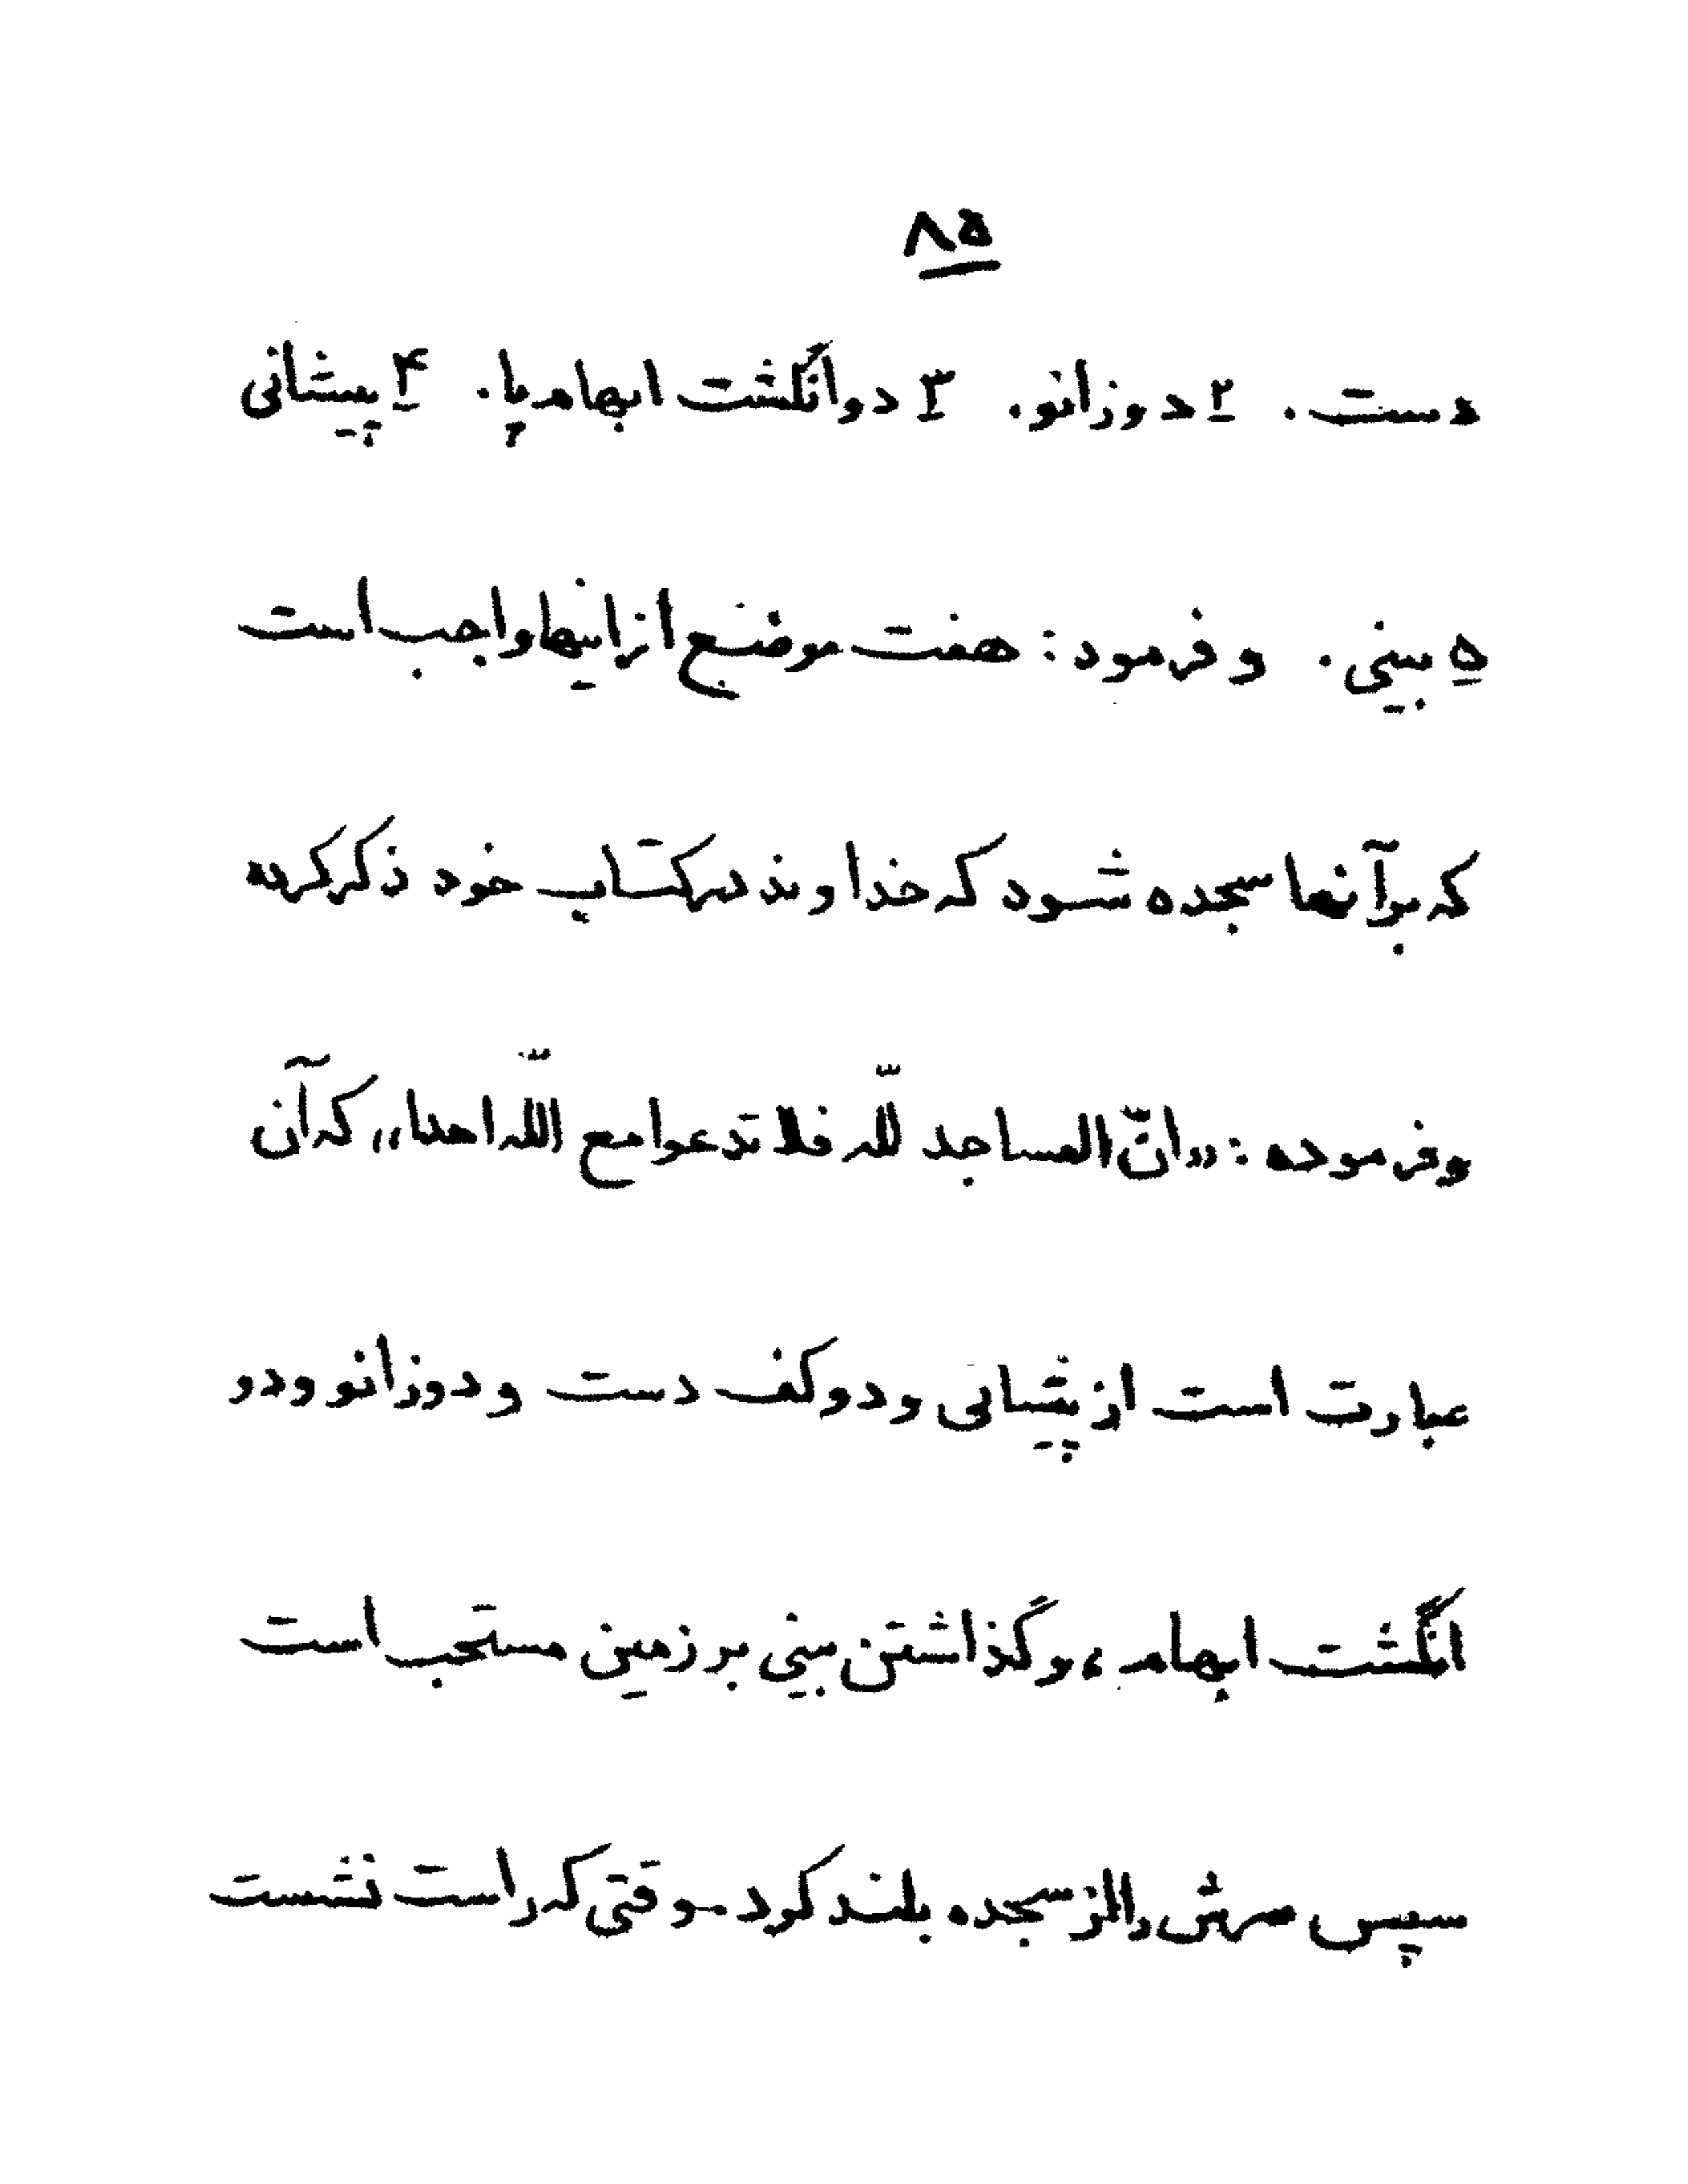 ۸۵
دست. ۲ دوزانو. ۳ دوانگشت ابهام پا. ۴ پیشانی
۵ بینی. و فرمود: هفت موضع از اینها واجب است
که برآنها سجده شود که خداوند در کتاب خود ذکر کرده
و فرموده: «انّ المساجد للّه فلا تدعوا مع اللّه احدا» که آن
عبارت است از پیشانی و دو کف دست و دوزانو و دو
انگشت ابهام، و گذاشتن بینی بر زمین مستحب است
سپس سرش را از سجده بلند کرد. وقتی که راست نشست